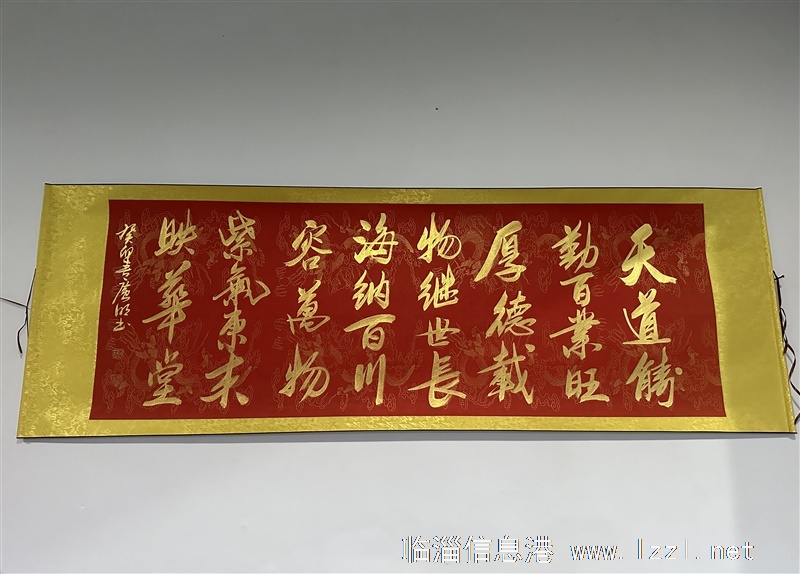 天道酬
勤百業旺
厚德載
物继世長
海纳百川
容萬物
紫氣東来
映華堂
癸卯春廣书
临淄信息港 www.lzzl.net